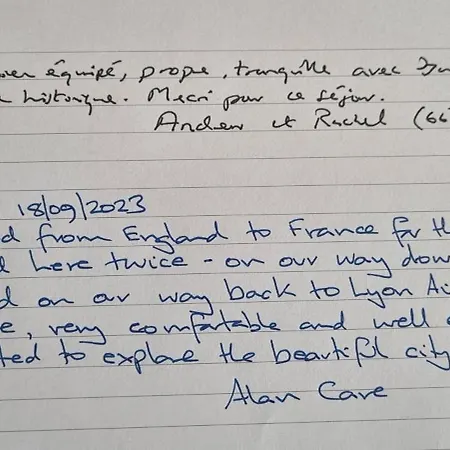 équipé, propre, tranquille avec
historique. Merci pour ce séjour.
Andrew et Rachel (66
18/09/2023
d from England to France for th
here twice - on our way dow
d on our way back to Lyon Ai
e, very comfortable and well
ted to explore the beautiful city
Alan Cave